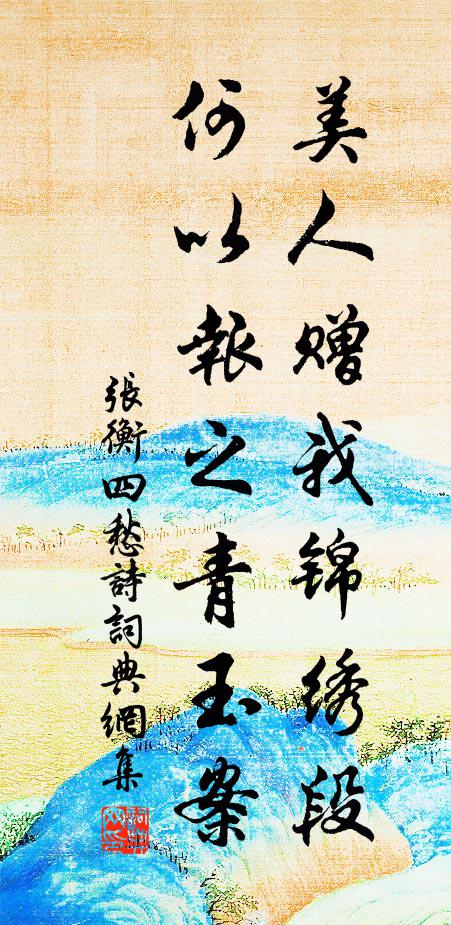 美人赠我锦绣段
何以報之青玉案
張衡四愁詩詞典網集